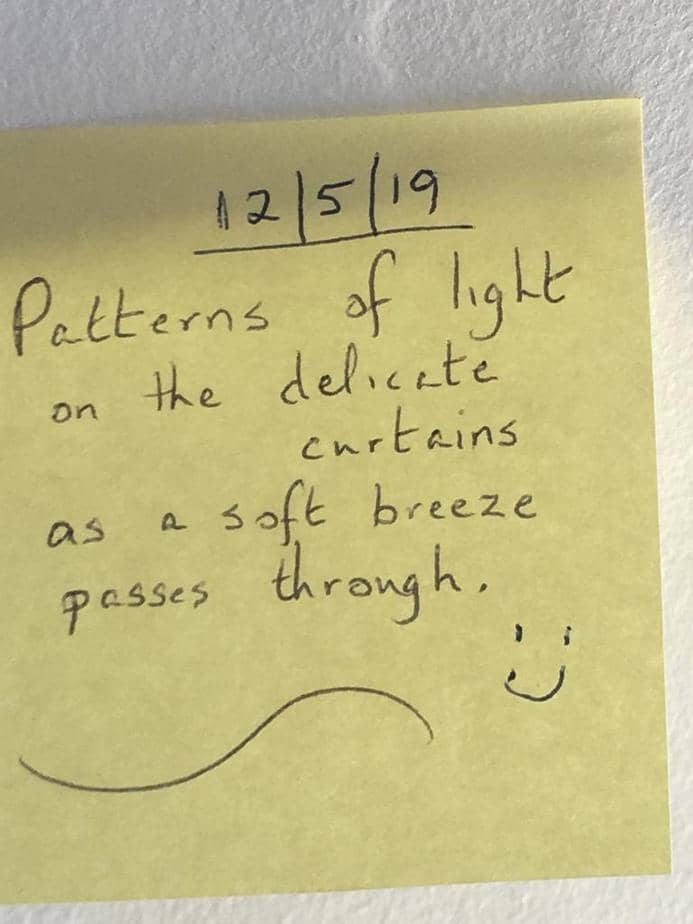 12/5/19
Patterns of light
on the delicate
curtains
as a soft breeze
passes through.